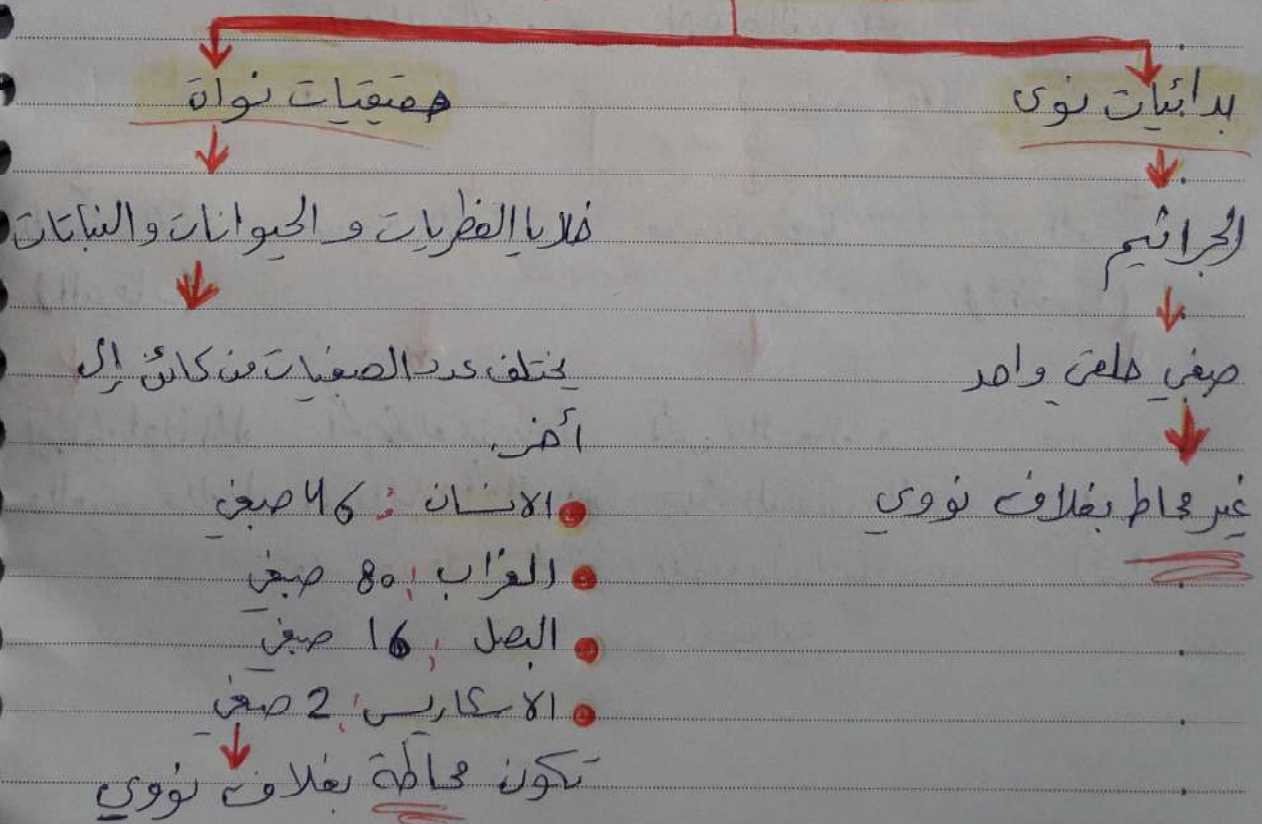 بدائيات نوى
الجراثيم
صبغي حلقي واحد
غير محاط بغلاف نووي
حقيقيات نواة
خلايا الفطريات و الحيوانات و النباتات
يختلف عدد الصبغيات من كائن إلى
أخر.
الانسان : 46 صبغي
الغراب : 80 صبغي
البصل : 16 صبغي
الاسكاريس : 2 صبغي
تكون محاطة بغلاف نووي